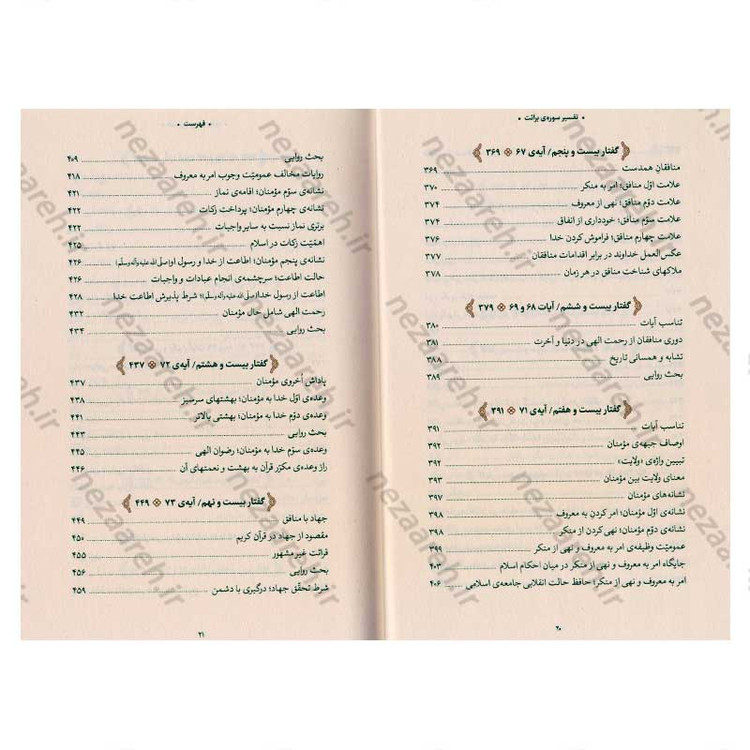 • تفسیر سوره‌ی برائت •
گفتار بیست و پنجم/ آیه‌ی ۶۷ ۳۶۹
منافقان همدست ۳۶۹
علامت اوّل منافق؛ امر به منکر ۳۷۰
علامت دوّم منافق؛ نهی از معروف ۳۷۴
علامت سوّم منافق؛ خودداری از انفاق ۳۷۴
علامت چهارم منافق؛ فراموش کردن خدا ۳۷۶
عکس‌العمل خداوند در برابر اقدامات منافقان ۳۷۷
ملاکهای شناخت منافق در هر زمان ۳۷۸
گفتار بیست و ششم/ آیات ۶۸ و ۶۹ ۳۷۹
تناسب آیات ۳۸۰
دوری منافقان از رحمت الهی در دنیا و آخرت ۳۸۱
تشابه و همسانی تاریخ ۳۸۸
بحث روایی ۳۸۹
گفتار بیست و هفتم/ آیه‌ی ۷۱ ۳۹۱
تناسب آیات ۳۹۱
اوصاف جبهه‌ی مؤمنان ۳۹۲
تبیین واژه‌ی «ولایت» ۳۹۲
معنای ولایت بین مؤمنان ۳۹۳
نشانه‌های مؤمنان ۳۹۷
نشانه‌ی اوّل مؤمنان؛ امر کردن به معروف ۳۹۸
نشانه‌ی دوّم مؤمنان؛ نهی کردن از منکر ۳۹۸
عمومیّت وظیفه‌ی امر به معروف و نهی از منکر ۳۹۹
جایگاه امر به معروف و نهی از منکر در میان احکام اسلام ۴۰۳
امر به معروف و نهی از منکر؛ حافظ حالت انقلابی جامعه‌ی اسلامی ۴۰۶
۲۰
• فهرست •
بحث روایی ۴۰۹
روایات مخالف عمومیّت وجوب امر به معروف ۴۱۸
نشانه‌ی سوّم مؤمنان؛ اقامه‌ی نماز ۴۲۱
نشانه‌ی چهارم مؤمنان؛ پرداخت زکات ۴۲۲
برتری نماز نسبت به سایر واجبات ۴۲۲
اهمّیّت زکات در اسلام ۴۲۵
نشانه‌ی پنجم مؤمنان؛ اطاعت از خدا و رسول او(صلی الله علیه و آله و سلم) ۴۲۶
حالت اطاعت؛ سرچشمه‌ی انجام عبادات و واجبات ۴۲۶
اطاعت از رسول خدا(صلی الله علیه و آله و سلم)؛ شرط پذیرش اطاعت خدا ۴۲۸
رحمت الهی شامل حال مؤمنان ۴۳۲
بحث روایی ۴۳۴
گفتار بیست و هشتم/ آیه‌ی ۷۲ ۴۳۷
پاداش اُخروی مؤمنان ۴۳۷
وعده‌ی اوّل خدا به مؤمنان؛ بهشتهای سرسبز ۴۳۸
وعده‌ی دوّم خدا به مؤمنان؛ بهشتی بالاتر ۴۴۱
بحث روایی ۴۴۳
وعده‌ی سوّم خدا به مؤمنان؛ رضوان الهی ۴۴۵
راز وعده‌ی مکرّر قرآن به بهشت و نعمتهای آن ۴۴۶
گفتار بیست و نهم/ آیه‌ی ۷۳ ۴۴۹
جهاد با منافق ۴۴۹
مقصود از جهاد در قرآن کریم ۴۵۰
قرائت غیر مشهور ۴۵۵
بحث روایی ۴۵۶
شرط تحقّق جهاد؛ درگیری با دشمن ۴۵۹
۲۱
nezaareh.ir